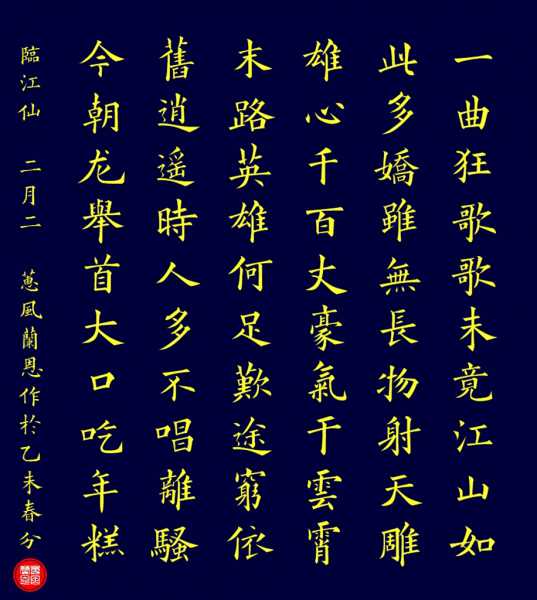 一曲狂歌歌未竟江山如
此多嬌雖無長物射天雕
雄心千百丈豪氣干雲霄
末路英雄何足歎途窮依
舊逍遥時人多不唱離騷
今朝龙舉首大口吃年糕
臨江仙 二月二 蕙風蘭恩作於乙未春分